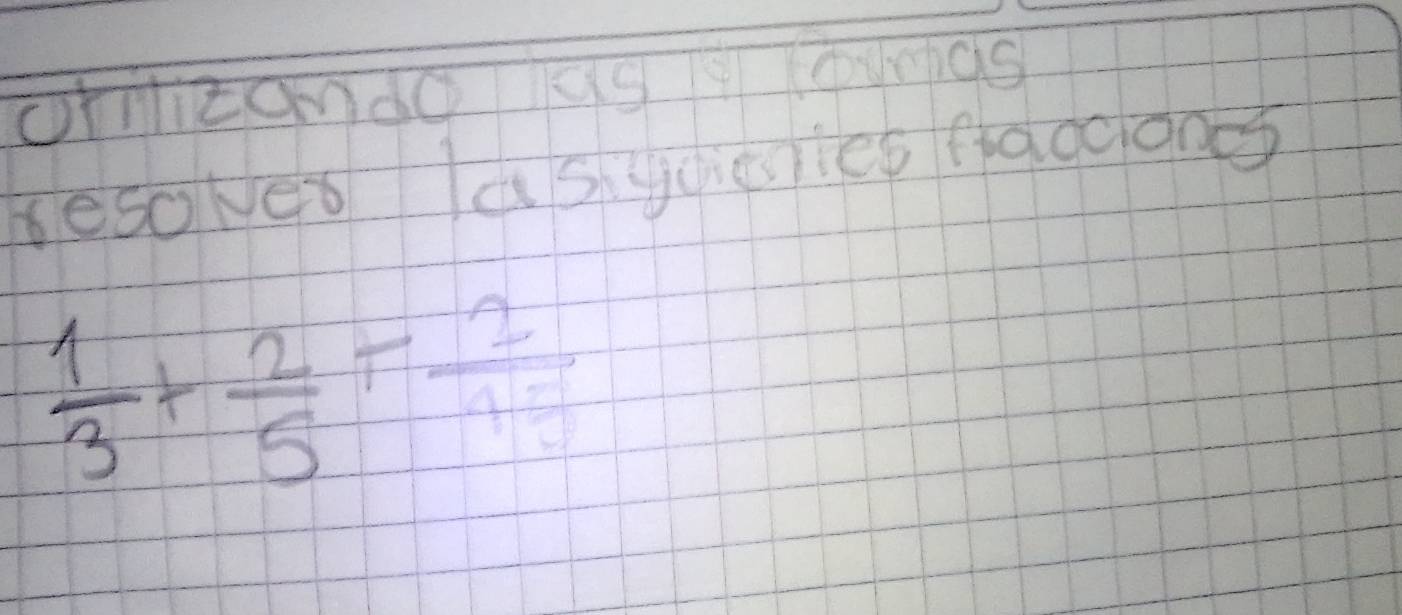 utilizando las formas
resolver la siguientes fracciones
1/3 + 2/5 + 2/15